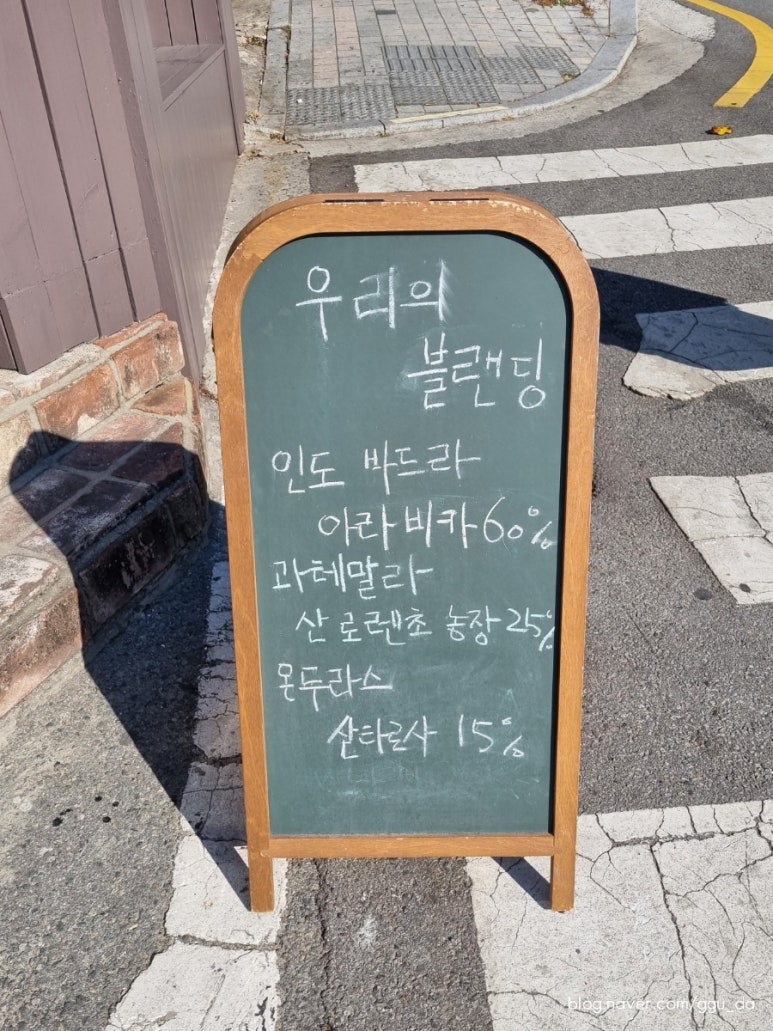 우리의
블랜딩
인도 바드라
아라비카 60%
과테말라
산 로렌초 농장 25%
온두라스
산타로사 15%
blog.naver.com/ggu_da